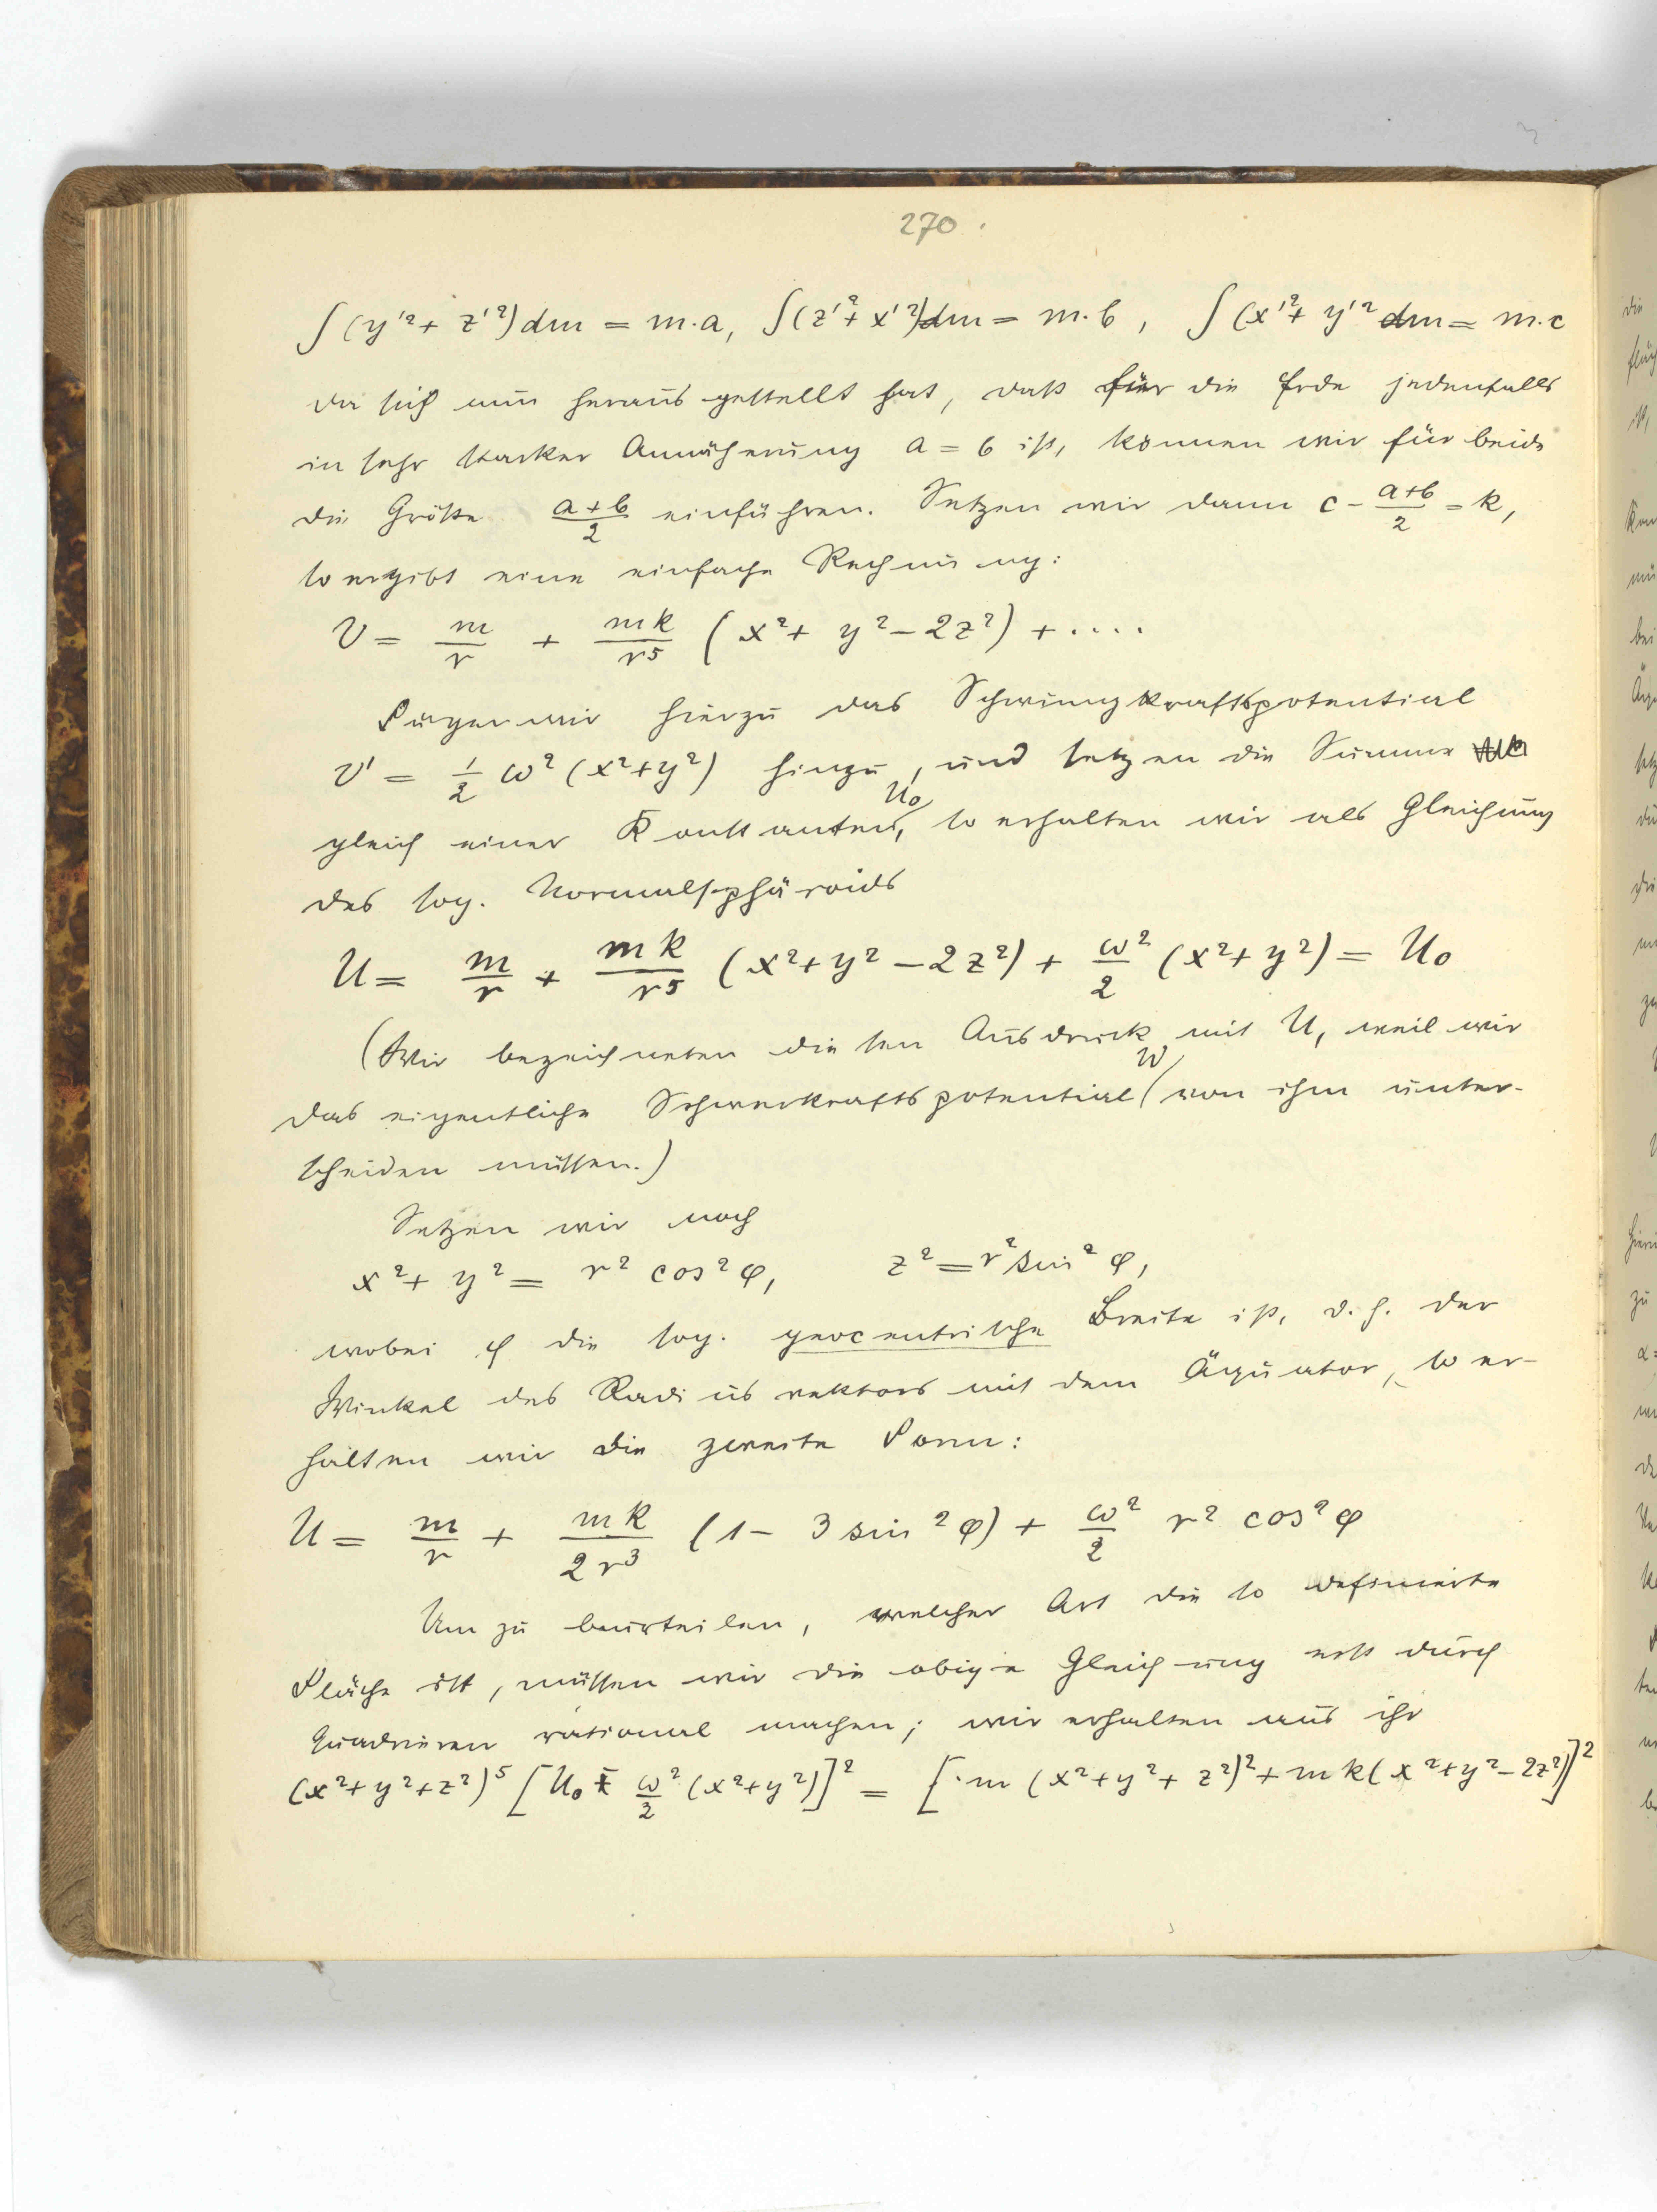 270.
∫(y'²+ z'²)dm = m.a, ∫(z'²+ x'²)dm = m.b, ∫(x'²+ y'² dm = m.c
da sich nun herausgestellt hat, daß für die Erde jedenfalls
in sehr starker Annäherung a = b ist, können wir für beide
die Größe (a+b)/2 einführen. Setzen wir dann c - (a+b)/2 = k,
so ergibt eine einfache Rechnung:
V = m/r + mk/r⁵ (x²+ y² - 2z²) + ....
Fügen wir hierzu das Schwungkraftspotential
V' = 1/2 ω² (x²+y²) hinzu, und setzen die Summe
gleich einer Konstanten U₀, so erhalten wir als Gleichung
des sog. Normalsphäroids
U = m/r + mk/r⁵ (x²+y² - 2z²) + ω²/2 (x²+y²) = U₀
(Wir bezeichneten diesen Ausdruck mit U, weil wir
das eigentliche Schwerkraftspotential W von ihm unter-
scheiden müssen.)
Setzen wir noch
x²+ y² = r² cos²φ, z² = r² sin²φ,
wobei φ die sog. geocentrische Breite ist, d.h. der
Winkel des Radiusvektors mit dem Äquator, so er-
halten wir die zweite Form:
U = m/r + mk/2r³ (1 - 3 sin²φ) + ω²/2 r² cos²φ
Um zu beurteilen, welcher Art die so definierte
Fläche ist, müssen wir die obige Gleichung erst durch
Quadrieren rational machen; wir erhalten aus ihr
(x²+y²+z²)⁵ [U₀ - ω²/2 (x²+y²)]² = [m (x²+y²+z²)²+ mk(x²+y²-2z²)]²